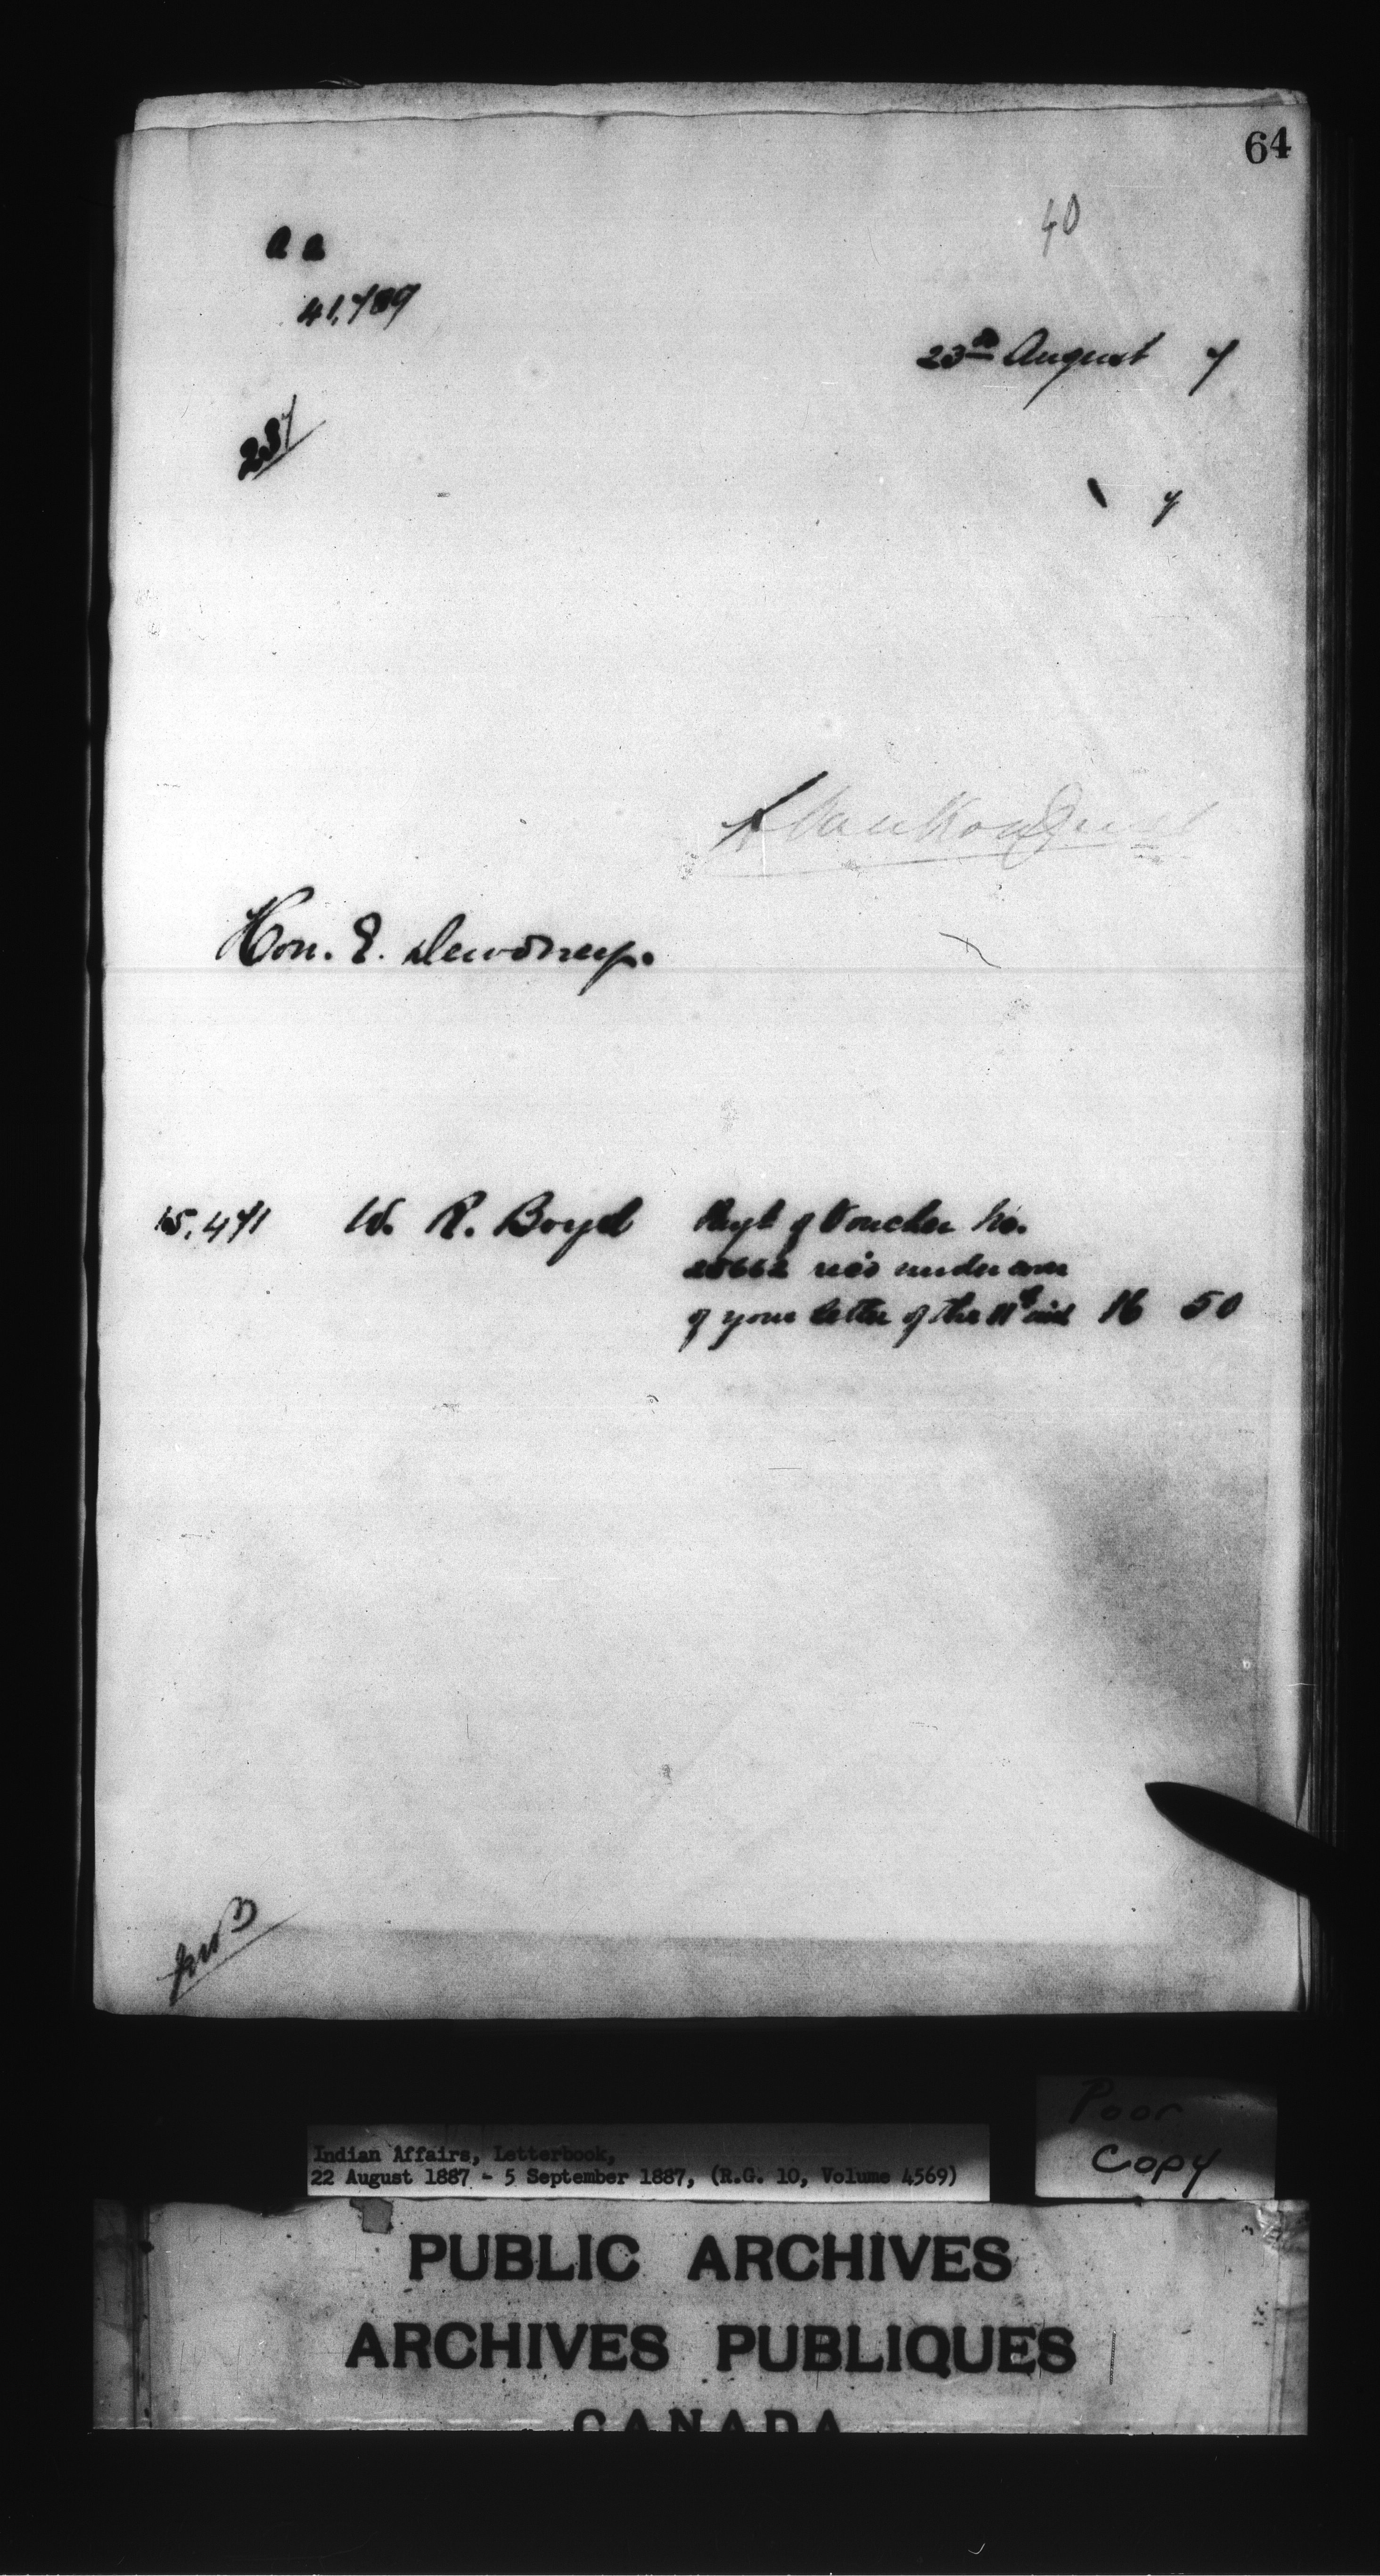 64
40
a a
41,789
23rd August 7
237
7
L Vankoughnet
Hon. E. Dewdney.
15,471 W. R. Boyd Payt of Voucher No.
20662 rec'd under cover
of your letter of the 11th inst 16 50
Indian Affairs, Letterbook,
22 August 1887 - 5 September 1887, (R.G. 10, Volume 4569)
Poor
Copy
PUBLIC ARCHIVES
ARCHIVES PUBLIQUES
CANADA